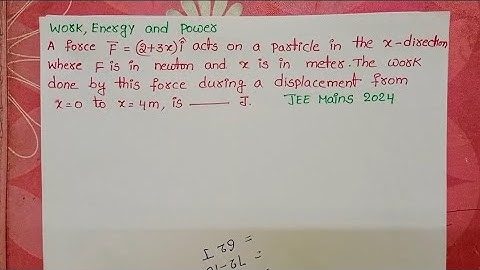 Work, Energy and Power
A force F̅ = (2+3x)î acts on a particle in the x-direction
where F is in newton and x is in meter. The work
done by this force during a displacement from
x=0 to x=4m, is ——— J. JEE Mains 2024
= 62 J
= 72-10